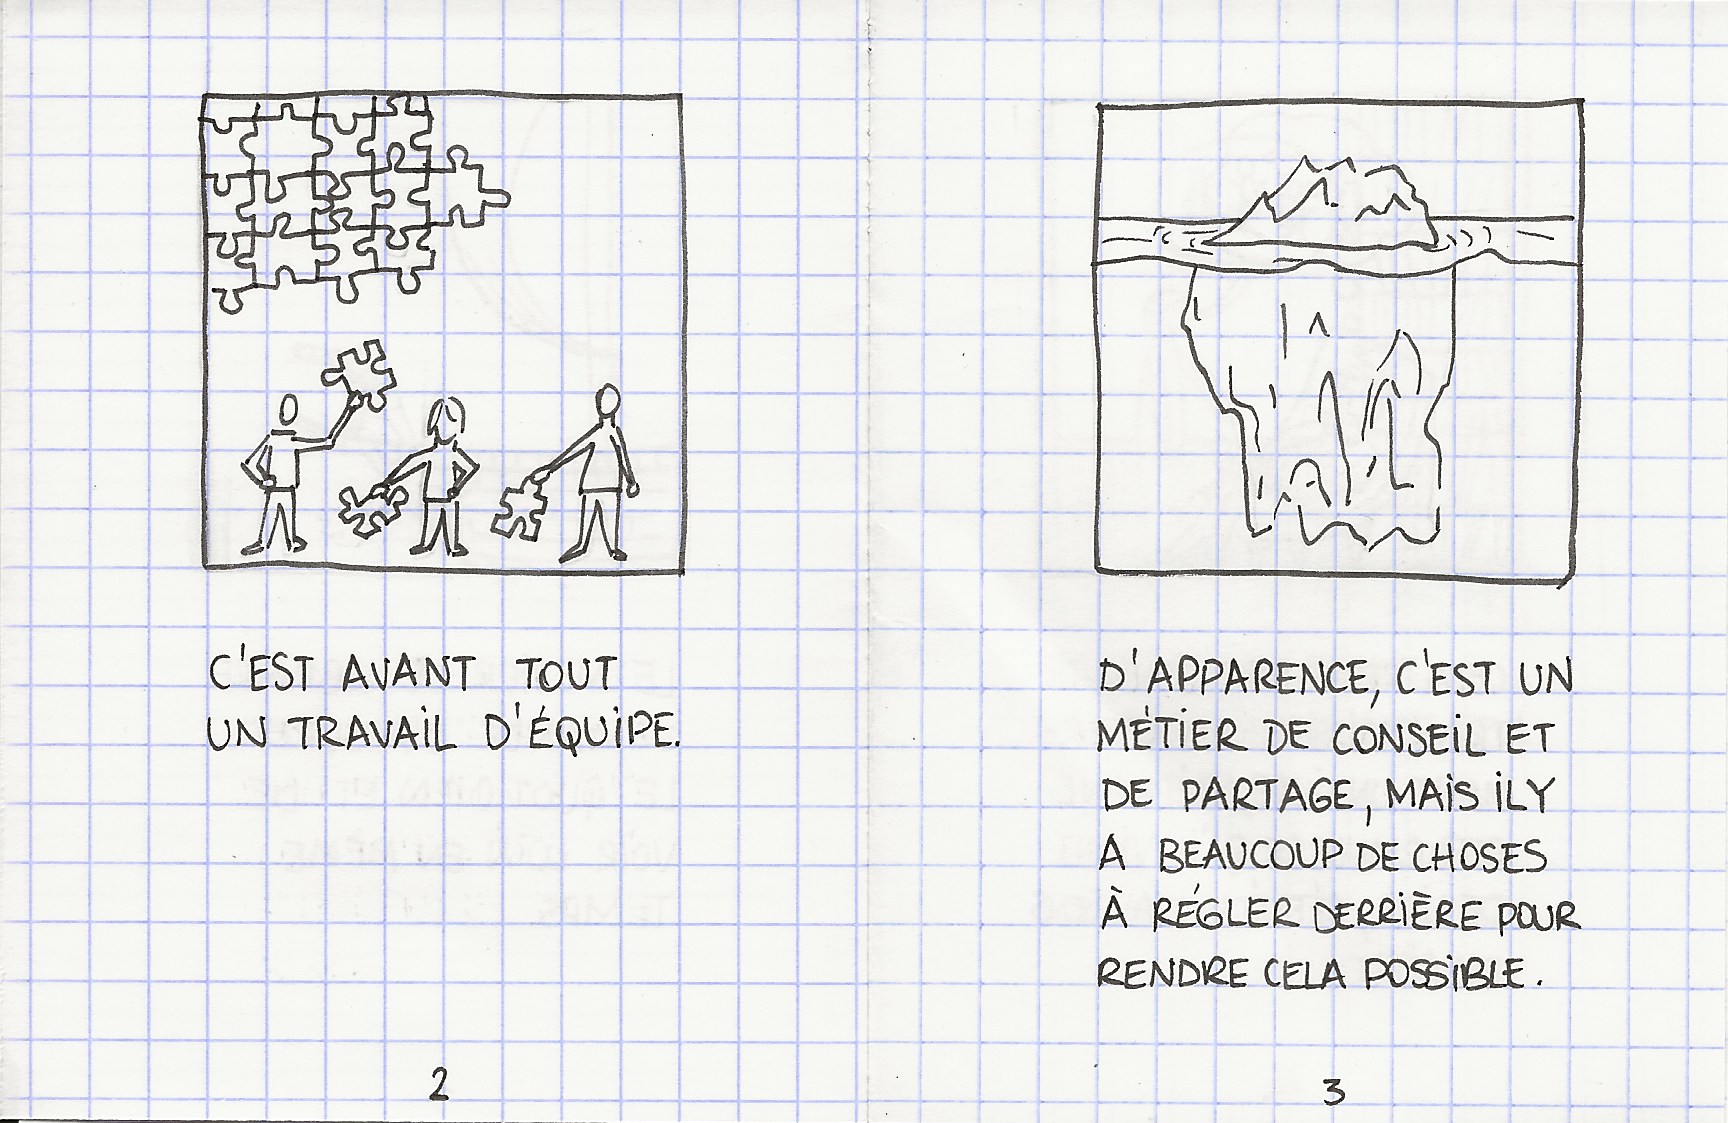 C'EST AVANT TOUT
UN TRAVAIL D'ÉQUIPE.
2
D'APPARENCE, C'EST UN
MÉTIER DE CONSEIL ET
DE PARTAGE, MAIS IL Y
A BEAUCOUP DE CHOSES
À RÉGLER DERRIÈRE POUR
RENDRE CELA POSSIBLE.
3